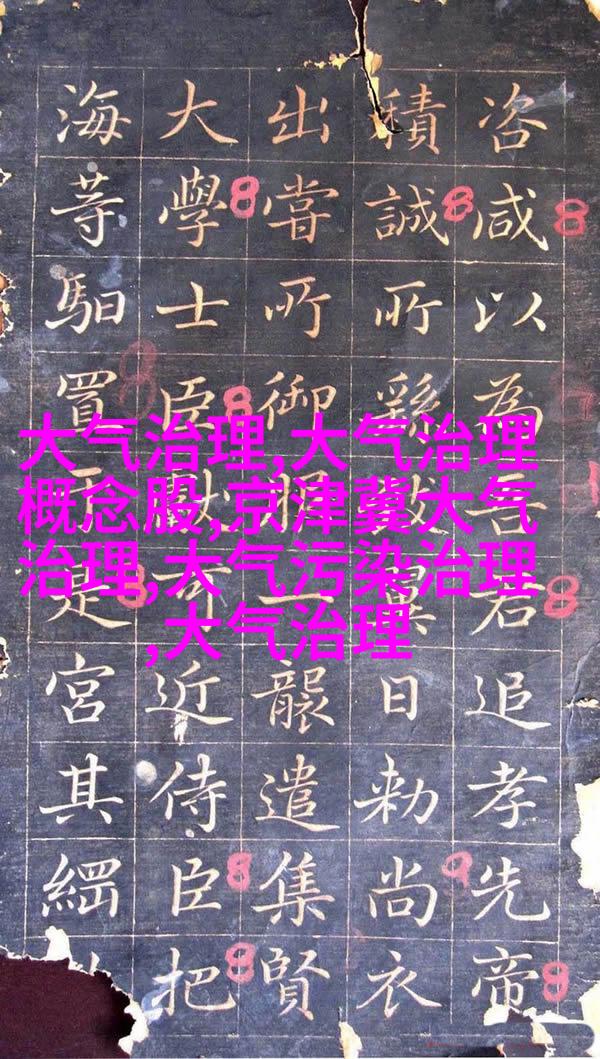 咨咸以為吾君追孝先帝
積誠所繇日勑尚衣
出嘗所御一襲遣集賢
大學士臣近侍臣把
海等馹置于是宮其
大气治理,大气治理
概念股,京津冀大气
治理,大气污染治理
,大气治理